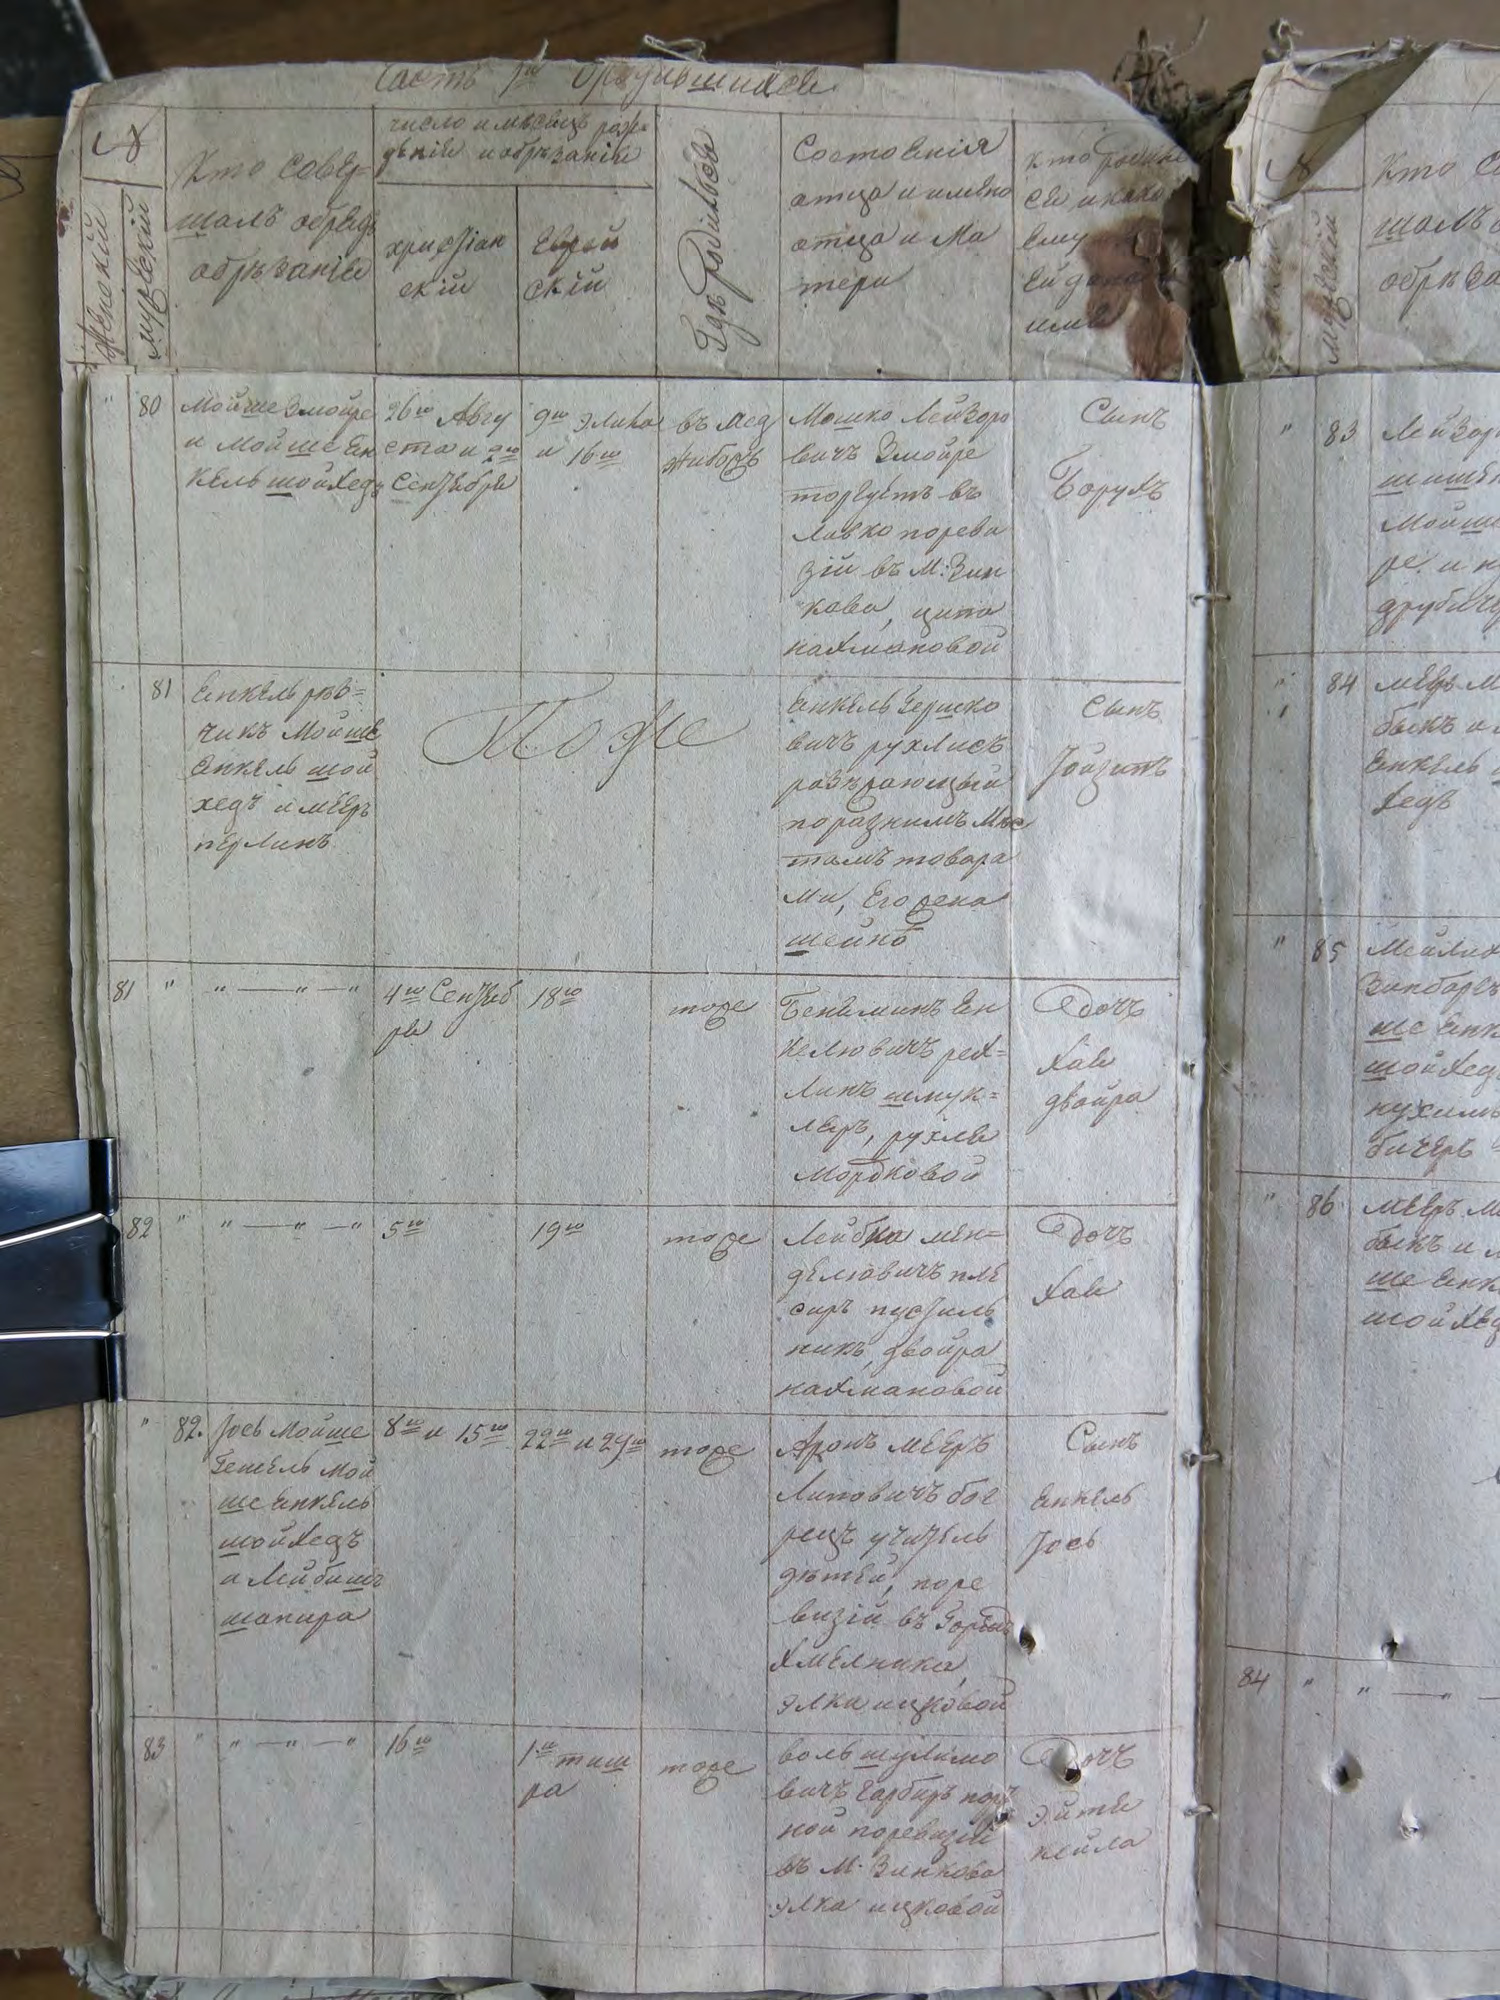 Часть 1я о родившихся
№
Женский
мужеский
Кто совер-
шалъ обрядъ
обрѣзанія
число и мѣсяцъ рож-
дѣнія и обрѣзанія
христіан
скій
Еврей
скій
Гдѣ родился
Состоянія
отца и имено
отца и Ма
тери
Кто родил
ся и како
Ему
Ей дано
имя
" 80
Мойше Змойре
и Мойше Ен
кель шойхедъ
26го Авгу
ста и 2го
Сентября
9го Элила
и 16го
въ Мед
жибожъ
Мошко Лейзоро
вичъ Змойре
торгуетъ въ
лавко порева
зій въ М: Зин
кова, ципа
нахмановой
Сынъ
Борухъ
81
Енкель рѣз=
чикъ Мойше
Енкель шой
хедъ и Мееръ
перлинъ
Тоже
Енкель Гершко
вичъ рухлисъ
поразнимъ Мѣс
тамъ товара
ми, Его жена
шейнѣ
Сынъ
81 " " — " — "
4го Сентяб
ря
18го
тоже
Бенеминъ Ен
келювичъ рех=
линъ шмук=
леръ, рухля
Мордковой
Дочъ
Хая
двойра
82 " " — " — "
5го
19го
тоже
Лейбка мен=
делювичъ пле
серъ пустиль
никъ, двойра
нахмановой
Дочъ
Хая
" 82.
Іось Мойше
Гешель Мой
ше Енкель
шойхедъ
и Лейбишъ
шапира
8го и 15го
22го и 29го
тоже
Аронъ Мееръ
Липовичъ бог
рецъ учитель
дѣтей, поре
визій въ Городѣ
Хмелника,
элки ицковой
Сынъ
Енкель
Іось
83 " " — " — "
16го
1го тиш
ра
тоже
воль шулимо
вичъ Гарбиръ порт
ной поревизій
въ М. Зинкова
элка ицковой
Дочъ
Эйтя
кейла
№
мужеский
Кто Со
шалъ о
обрѣза
" 83
Лейзор
Мойш
ре. и
" 84
Мееръ М
быкъ и
Енкель
хедъ
" 85
ше Енк
шойхед
" 86
Мееръ М
быкъ и
ше Енк
шойхед
84 " " — " —